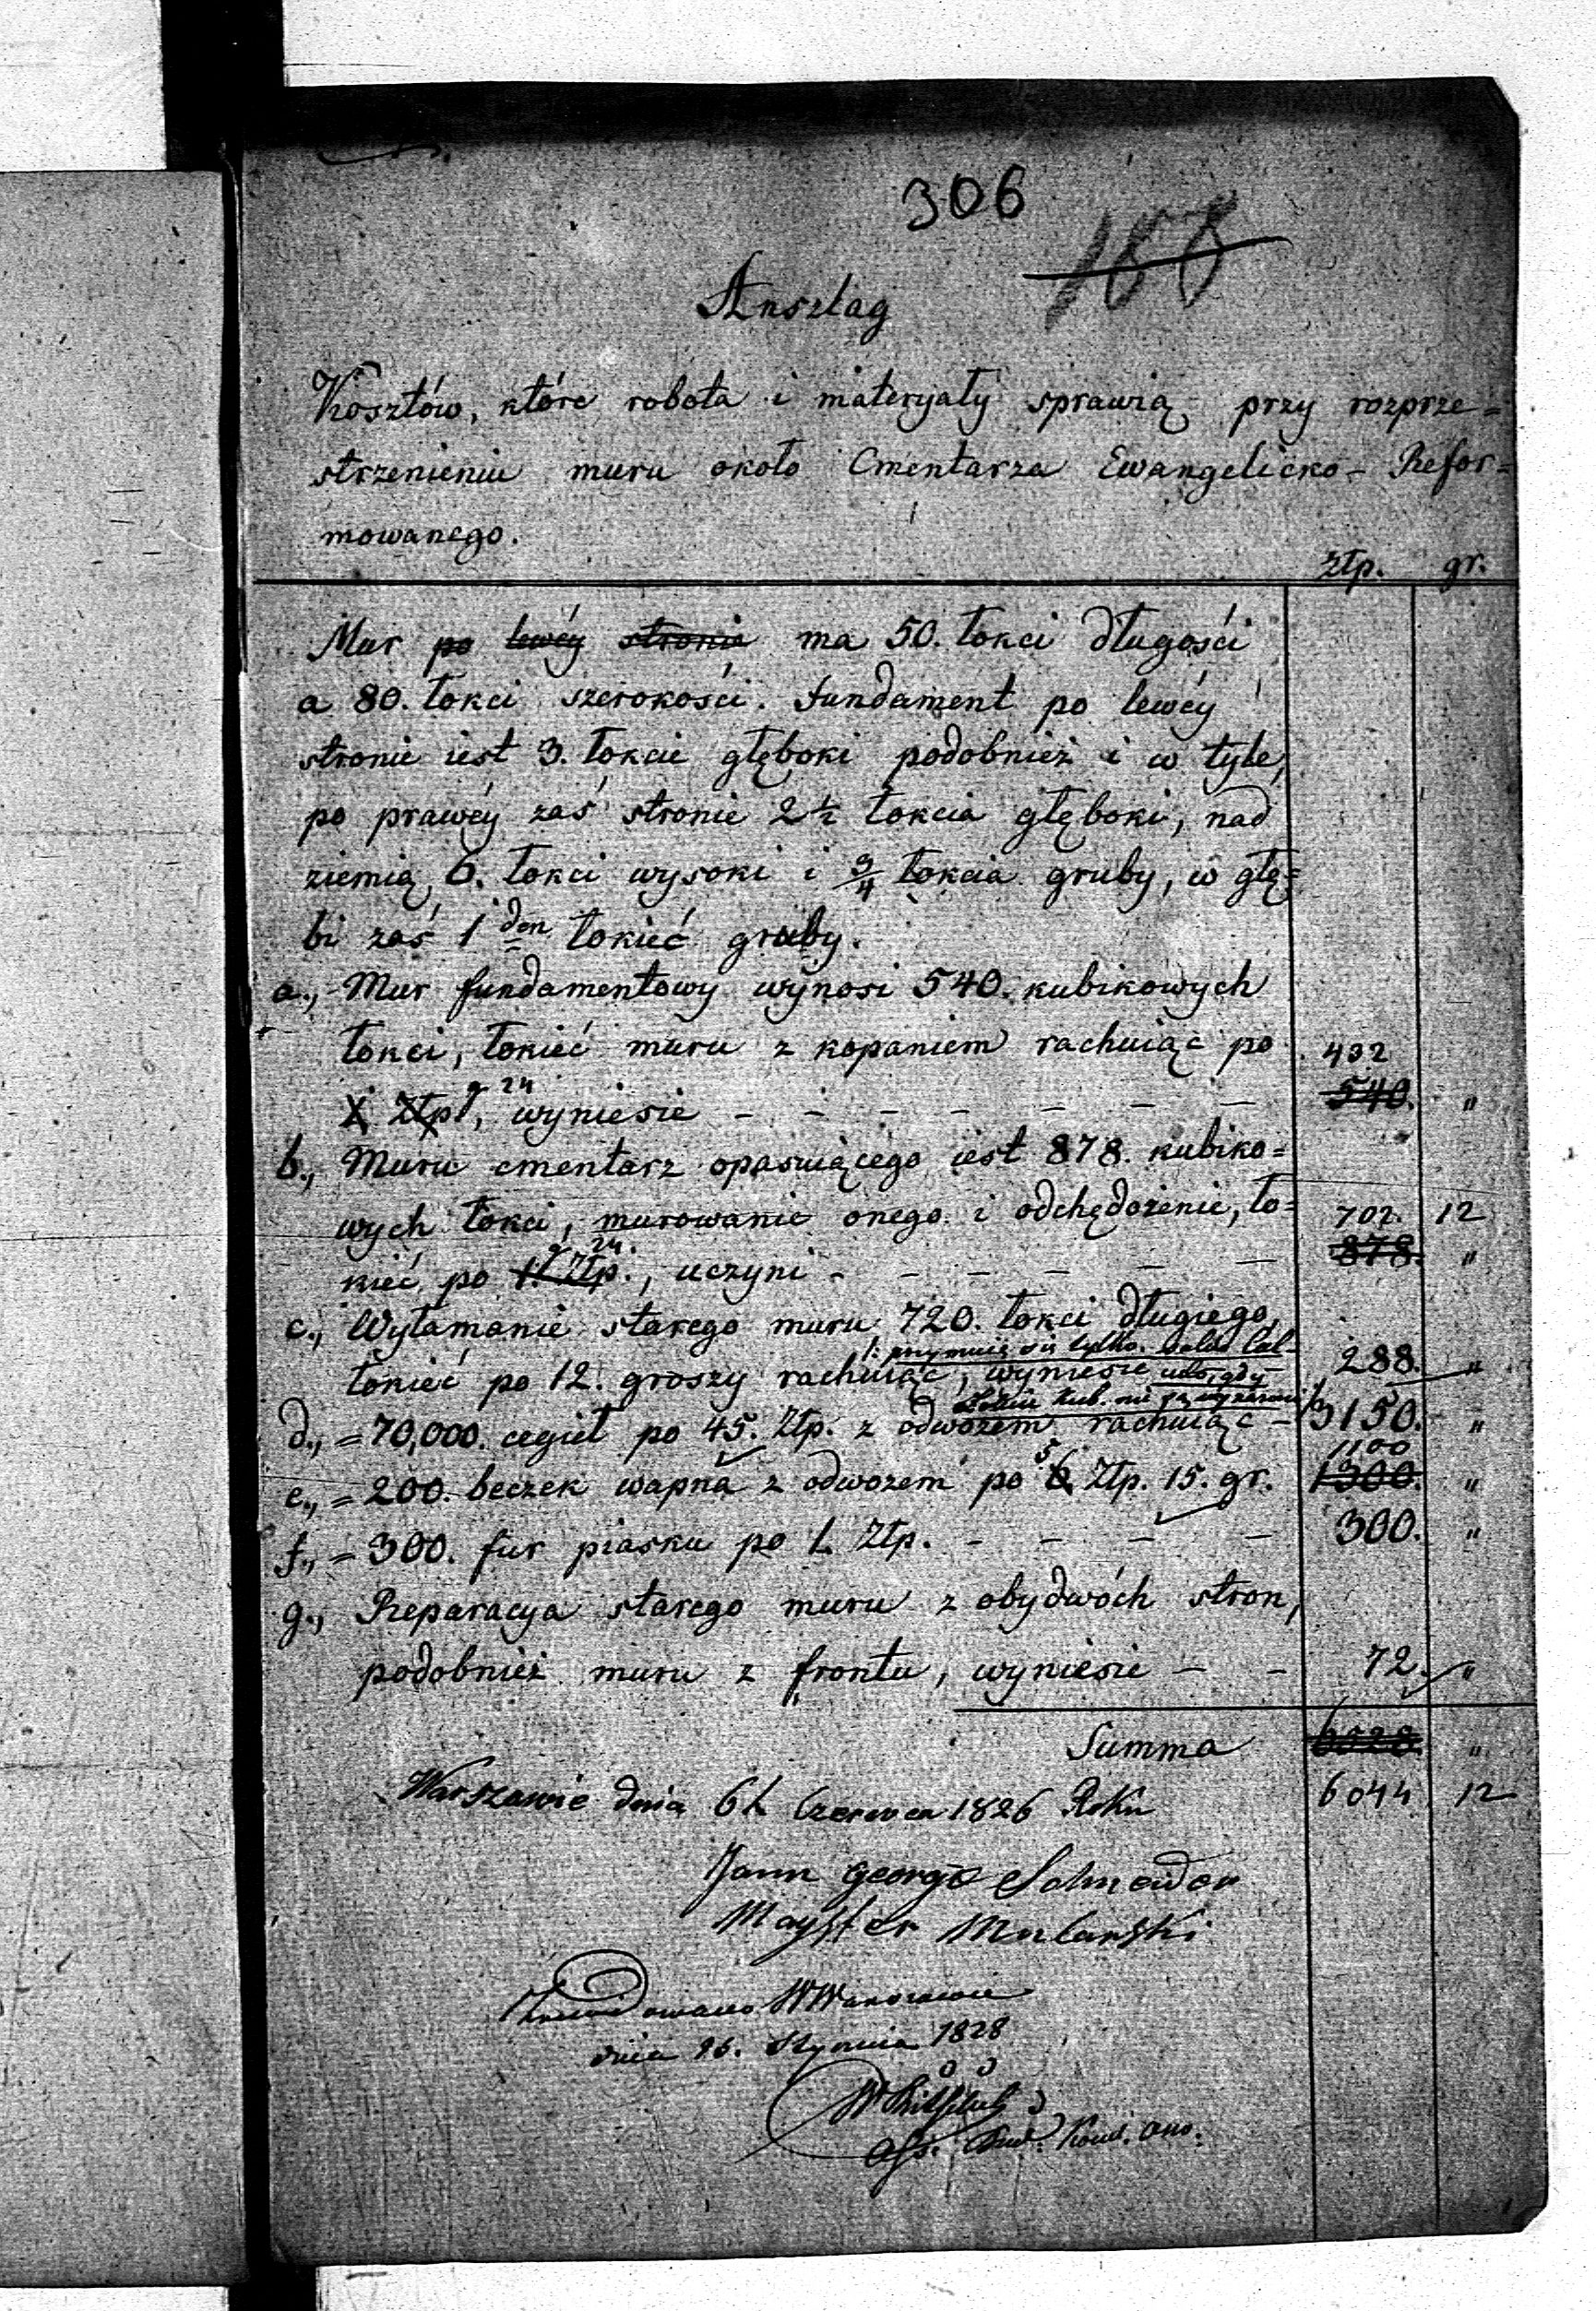 306
Anszlag
Kosztów, które robota i materyały sprawią, przy rozprze=
strzenieniu muru około Cmentarza Ewangelicko-Refor=
mowanego.
złp. gr.
Mur po lewéy stronie ma 50. łokci długości
a 80. łokci szerokości. Fundament po lewéy
stronie iest 3. łokcie głęboki podobnież i w tyle,
po prawéy zaś stronie 2½ łokcia głęboki, nad
ziemią, 6. łokci wysoki i ¾ łokcia gruby, w głę=
bi zaś 1den łokieć gruby.
a., Mur fundamentowy wynosi 540. kubikowych
łokci, łokieć muru z kopaniem rachuiąc po 432
g 24
1. Złp., wyniesie - - - - - - - 540. "
b., Muru cmentarz opasuiącego iest 878. kubiko=
wych łokci, murowanie onego i odchędożenie, ło= 702. 12
g 24.
kieć po 1. Złp., uczyni - - - - - - 878. "
c., Wyłamanie starego muru 720. łokci długiego,
przymuię się tylko
łokieć po 12. groszy rachuiąc, wyniesie 288. "
d., = 70,000. cegieł po 45. Złp. z odwozem rachuiąc - 3150. "
5 1100
e., = 200. beczek wapna z odwozem po 6. Złp. 15. gr. 1300. "
f., = 300. fur piasku po 1. Złp. - - - - 300. "
g., Reparacya starego muru z obydwóch stron,
podobnież muru z frontu, wyniesie - - 72. "
Summa 6528. "
Warszawie dnia 6t Czerwca 1826 Roku 6044. 12
Jann George Schneider
Mayster Mularski
W Warszawie
dnia 26. Stycznia 1828